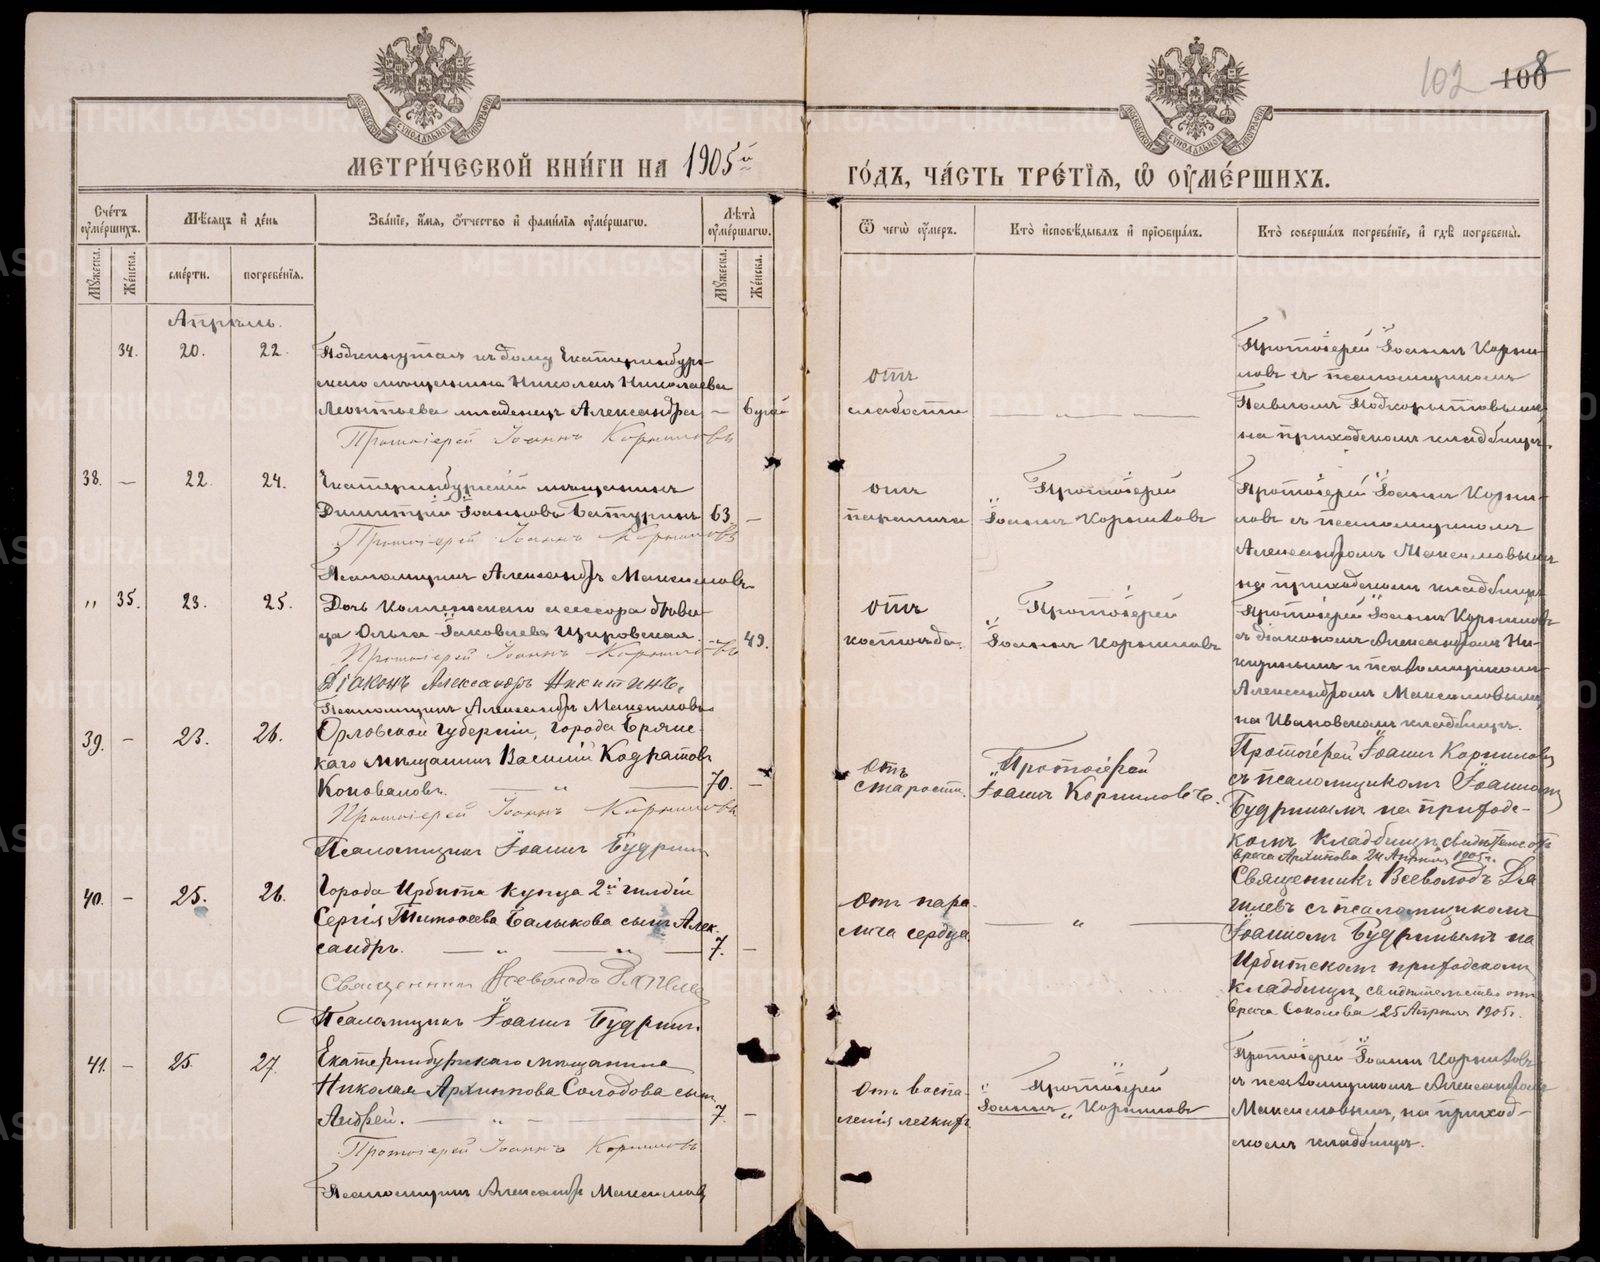 102 100 8
МЕТРИ́ЧЕСКОЙ КНИ́ГИ НА 1905й ГО́ДЪ, ЧА́СТЬ ТРЕ́ТІѦ, Ѿ ОУМЕ́РШИХЪ.
Сче́тъ оуме́ршихъ.
Мꙋжеска.
Же́нска.
Мѣ́сяцъ и де́нь
сме́рти.
погребе́нїѧ.
Зва́нїе, и́мѧ, о́тчество и фами́лїѧ оуме́ршагѡ.
Лѣ́та̀ оуме́ршагѡ.
Мꙋжеска.
Же́нска.
Ѿ чегѡ̀ оу́меръ.
Кто̀ исповѣ́дывалъ и прїобща́лъ.
Кто̀ соверша́лъ погребе́нїе, и гдѣ̀ погребены̀.
Апрѣль.
34. 20. 22.
Подкинутая къ дому Екатеринбург-
скаго мѣщанина Николая Николаева
Леонтьева младенецъ Александра —
Протоіерей Іоаннъ Корниловъ
отъ
слабости — „ —
Протоіерей Іоаннъ Корни-
ловъ съ псаломщикомъ
Павломъ Подкорытовымъ
на приходскомъ кладбищѣ.
38. — 22. 24.
Екатеринбургскій мѣщанинъ
Димитрій Іоанновъ Батуринъ 63 —
Протоіерей Іоаннъ Корниловъ
Псаломщикъ Александръ Максимовъ
отъ
паралича
Протоіерей
Іоаннъ Корниловъ
Протоіерей Іоаннъ Корни-
ловъ съ псаломщикомъ
Александромъ Максимовымъ
на приходскомъ кладбищѣ
„ 35. 23. 25.
Дочь коллежскаго ассесора дѣви-
ца Ольга Іаковлева 49.
Протоіерей Іоаннъ Корниловъ
Діаконъ Александръ Никитинъ.
Псаломщикъ Александръ Максимовъ
отъ
костоѣда.
Протоіерей
Іоаннъ Корниловъ
Протоіерей Іоаннъ Корниловъ
съ діакономъ Александромъ Ни-
китинымъ и псаломщикомъ
Александромъ Максимовымъ
на Ивановскомъ кладбищѣ.
39. — 23. 26.
Орловской губерніи, города Брянс-
каго мѣщанинъ Василій Кодратовъ
Коноваловъ. — „ — 70. —
Протоіерей Іоаннъ Корниловъ
Псаломщикъ Іоаннъ Будринъ
Отъ
старости.
Протоіерей
Іоаннъ Корниловъ.
Протоіерей Іоаннъ Корниловъ
съ псаломщикомъ Іоанномъ
Будринымъ на приходс-
комъ кладбищѣ, свидѣтельс. отъ
врача Архипова 24 Апрѣля 1905 г.
40. — 25. 26.
Города Ирбита купца 2й гильдіи
Сергія Тимоѳеева Балыкова сынъ Алек-
сандръ. — „ — „ — 7. —
Священникъ Всеволодъ
Псаломщикъ Іоаннъ Будринъ.
Отъ пара-
лича сердца.
— „ —
Священникъ Всеволодъ
съ псаломщикомъ
Іоанномъ Будринымъ на
Ирбитскомъ приходскомъ
кладбищѣ, свидѣтельство отъ
врача Соколова 25 Апрѣля 1905 г.
41. — 25. 27.
Екатеринбургскаго мѣщанина
Николая Архипова Солодова сынъ
Андрей. — „ — 7. —
Протоіерей Іоаннъ Корниловъ
Псаломщикъ Александръ Максимовъ
Отъ воспа-
ленія легкихъ
Протоіерей
Іоаннъ „ Корниловъ
Протоіерей Іоаннъ Корниловъ
съ псаломщикомъ Александромъ
Максимовымъ, на приход-
скомъ кладбищѣ.
METRIKI.GASO-URAL.RU